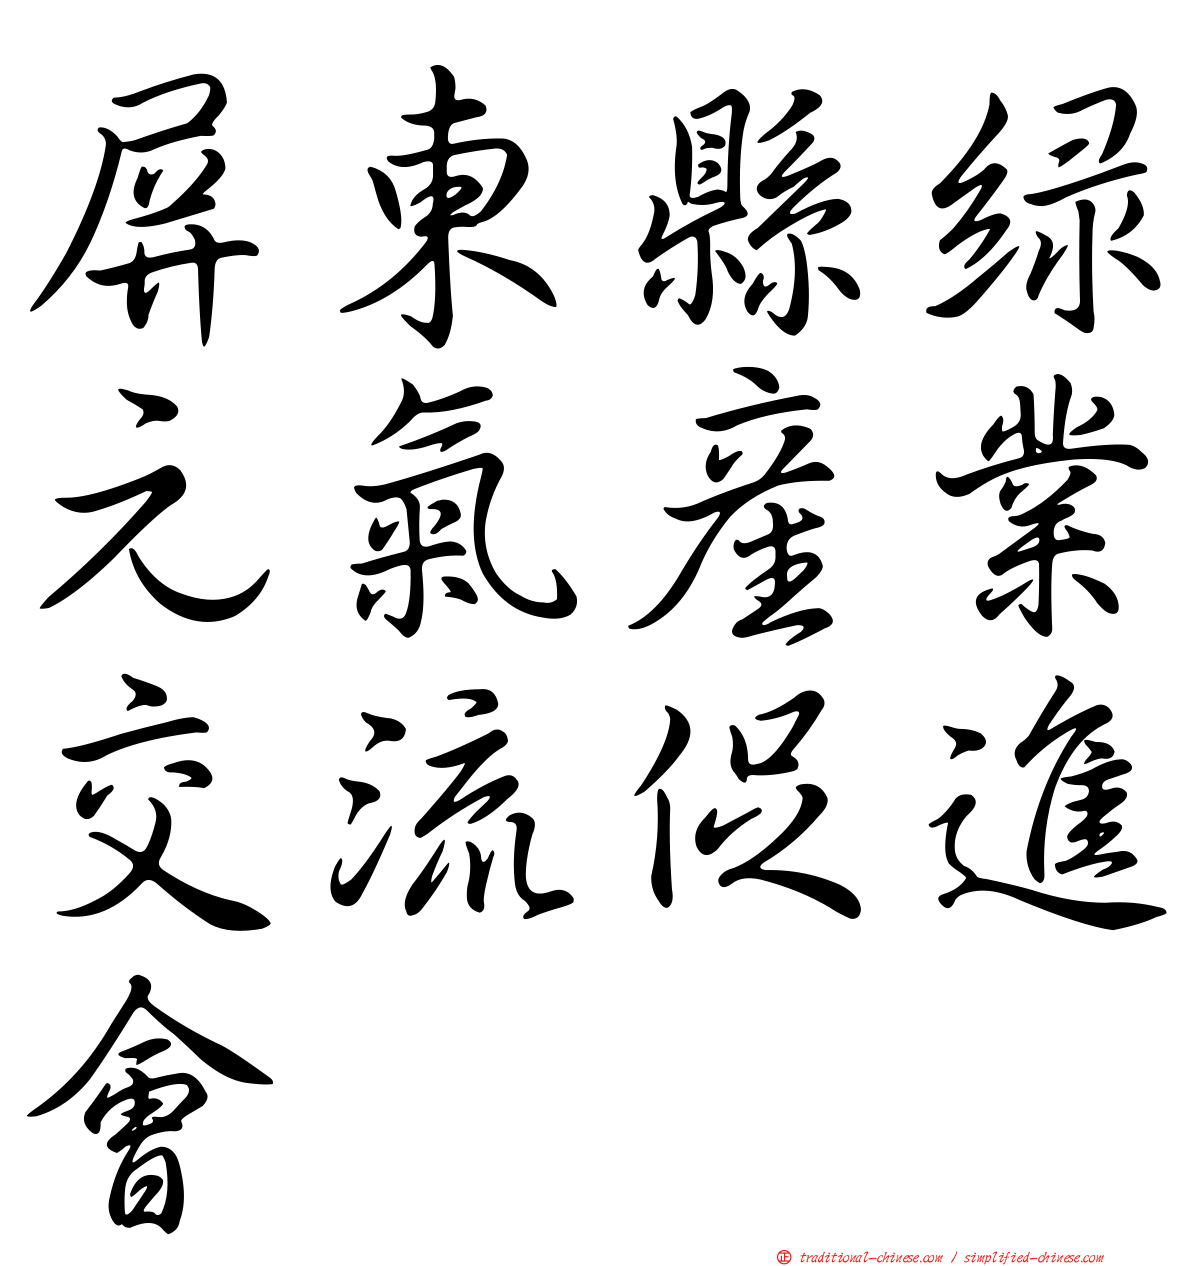 屏東縣绿
元氣産業
交流促進
會
正 traditional-chinese.com / simplified-chinese.com